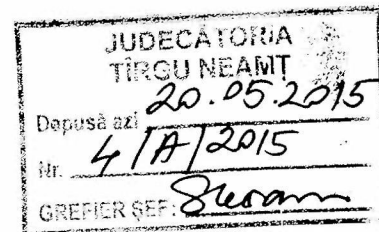 JUDECĂTORIA
TÎRGU NEAMȚ
Depusă azi 20.05.2015
Nr. 4/A/2015
GREFIER ȘEF: